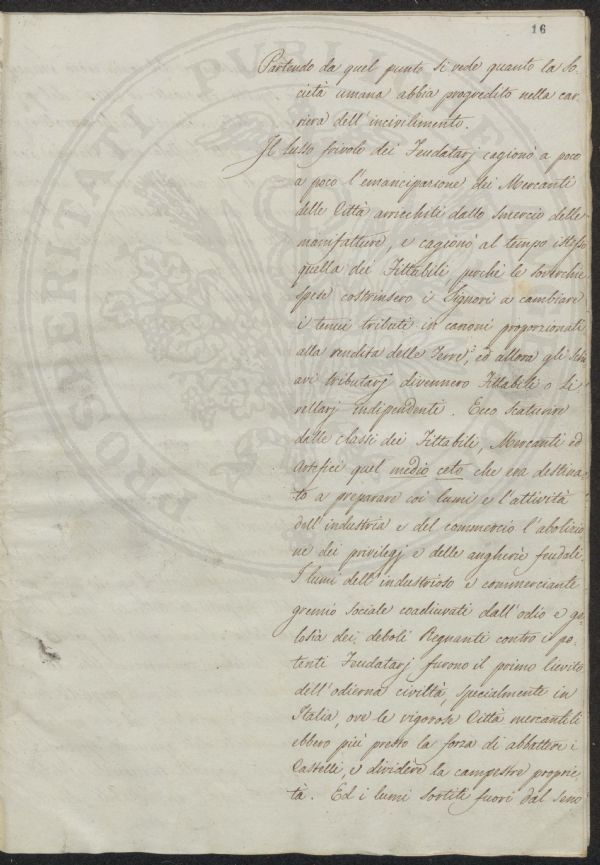 16
Partendo da quel punto si vede quanto la So-
cietà umana abbia progredito nella car-
riera dell'incivilimento.
Il lusso frivolo dei Feudatarj cagionò a poco
a poco l'emancipazione dei Mercanti
delle Città arricchiti dallo smercio delle
manifatture, e cagionò al tempo istesso
quella dei Fittabili, perchè le soverchie
spese costrinsero i Signori a cambiare
i tenui tributi in canoni proporzionati
alla rendita delle Terre, ed allora gli schi-
avi tributarj divennero Fittabili o Li-
vellarj indipendenti. Ecco scaturire
dalle classi dei Fittabili, Mercanti ed
Artefici quel medio ceto che era destina-
to a preparare coi lumi e l'attività
dell'industria e del commercio l'abolizio-
ne dei privilegj e delle angherie feudali.
I lumi dell'industrioso e commerciante
gremio sociale coadiuvati dall'odio e ge-
losia dei deboli Regnanti contro i po-
tenti Feudatarj furono il primo lievito
dell'odierna civiltà, specialmente in
Italia, ove le vigorose Città mercantili
ebbero più presto la forza di abbattere i
Castelli, e dividere la campestre proprie-
tà. Ed i lumi sortiti fuori dal seno
PROSPERITATI PUBLICAE